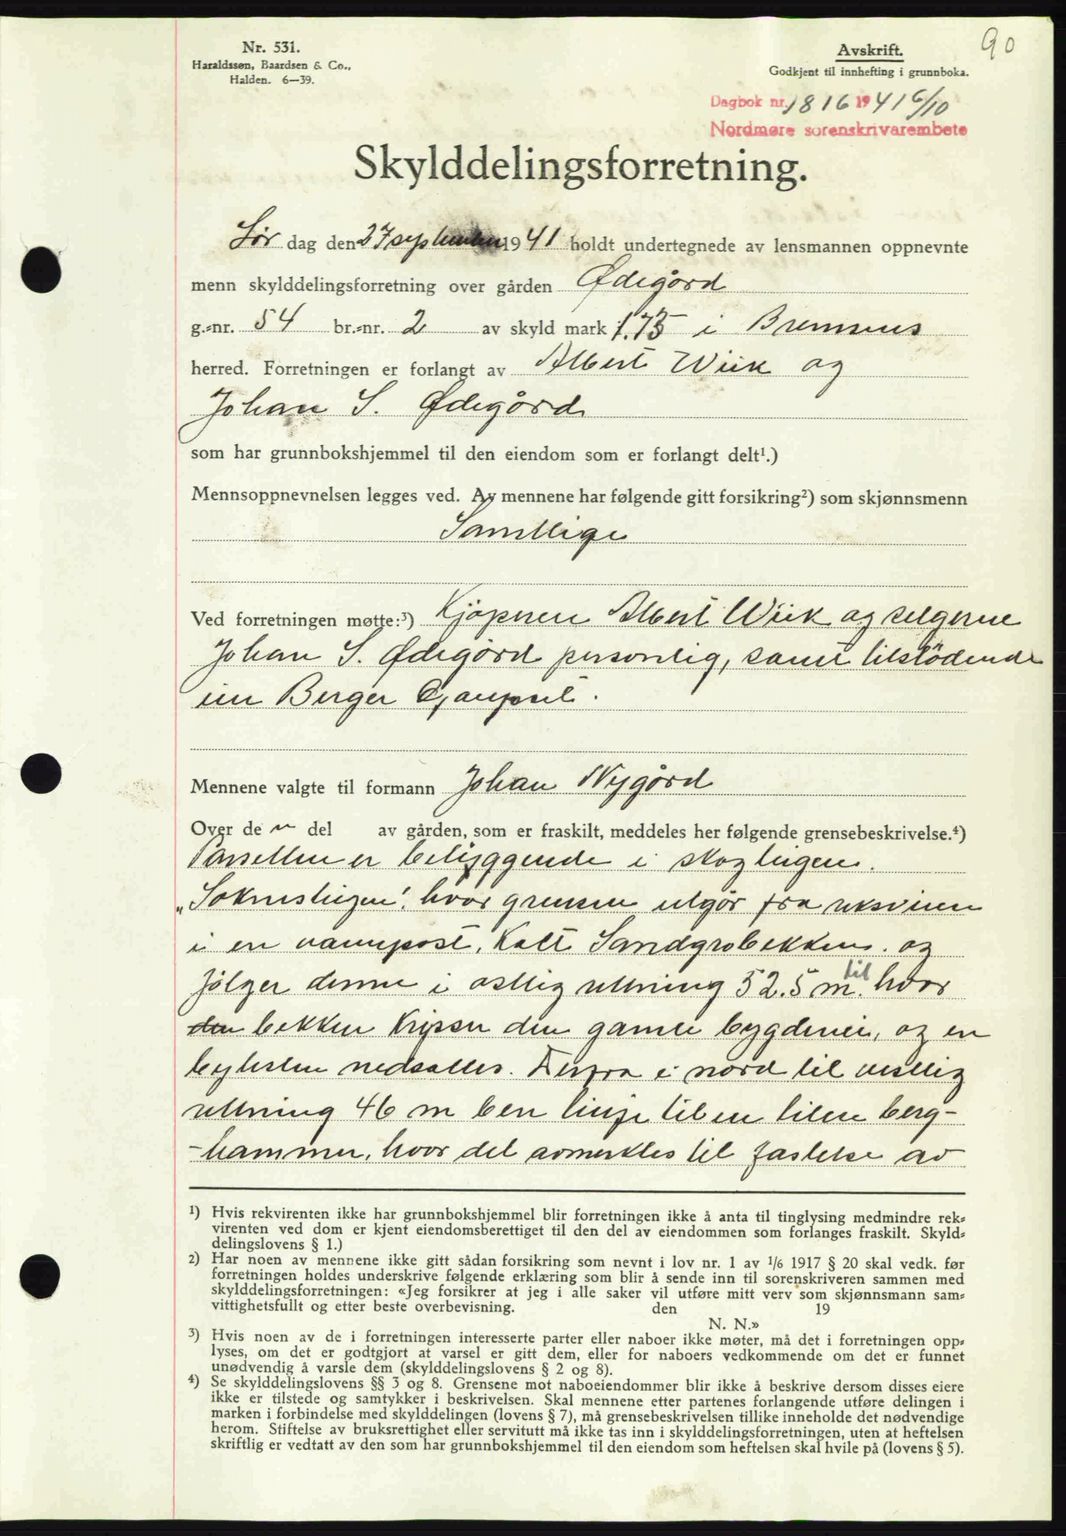 90
Nr. 531.
Haraldssøn, Baardsen & Co.,
Halden. 6—39.
Avskrift.
Godkjent til innhefting i grunnboka.
Dagbok nr. 1816 1941 6/10
Nordmøre sorenskrivarembete
Skylddelingsforretning.
Lør dag den 27 september 1941 holdt undertegnede av lensmannen oppnevnte
menn skylddelingsforretning over gården Ødegård
g.-nr. 54 br.-nr. 2 av skyld mark 1.75 i Bremsnes
herred. Forretningen er forlangt av Albert Wiik og
Johan S. Ødegård
som har grunnbokshjemmel til den eiendom som er forlangt delt¹.)
Mennsoppnevnelsen legges ved. Av mennene har følgende gitt forsikring²) som skjønnsmenn
Samtlige
Ved forretningen møtte:³) Kjøperen Albert Wiik og selgerne
Johan S. Ødegård personlig, samt tilstødende
eier Berger
Mennene valgte til formann Johan Nygård
Over de n del av gården, som er fraskilt, meddeles her følgende grensebeskrivelse.⁴)
Parsellen er beliggende i skogteigen.
hvor grensen utgår fra
i en kalt Sandgrobekken. og
følger denne i østlig retning 52.5 m. til hvor
den bekken krysser den gamle bygdevei, og en
nedsattes. Derfra i nord til vestlig
retning 46 m ben linje til en liten berg-
-hammer, hvor det avmerktes til fastelse av
¹) Hvis rekvirenten ikke har grunnbokshjemmel blir forretningen ikke å anta til tinglysing medmindre rek-
virenten ved dom er kjent eiendomsberettiget til den del av eiendommen som forlanges fraskilt. Skyld-
delingslovens § 1.)
²) Har noen av mennene ikke gitt sådan forsikring som nevnt i lov nr. 1 av 1/6 1917 § 20 skal vedk. før
forretningen holdes underskrive følgende erklæring som blir å sende inn til sorenskriveren sammen med
skylddelingsforretningen: «Jeg forsikrer at jeg i alle saker vil utføre mitt verv som skjønnsmann sam-
vittighetsfullt og etter beste overbevisning. den 19
N. N.»
³) Hvis noen av de i forretningen interesserte parter eller naboer ikke møter, må det i forretningen opp-
lyses, om det er godtgjort at varsel er gitt dem, eller for naboers vedkommende om det er funnet
unødvendig å varsle dem (skylddelingslovens § 2 og 8).
⁴) Se skylddelingslovens §§ 3 og 8. Grensene mot naboeiendommer blir ikke å beskrive dersom disses eiere
ikke er tilstede og samtykker i beskrivelsen. Skal mennene etter partenes forlangende utføre delingen i
marken i forbindelse med skylddelingen (lovens § 7), må grensebeskrivelsen tillike inneholde det nødvendige
herom. Stiftelse av bruksrettighet eller servitutt må ikke tas inn i skylddelingsforretningen, uten at heftelsen
skriftlig er vedtatt av den som har grunnbokshjemmel til den eiendom som heftelsen skal hvile på (lovens § 5).